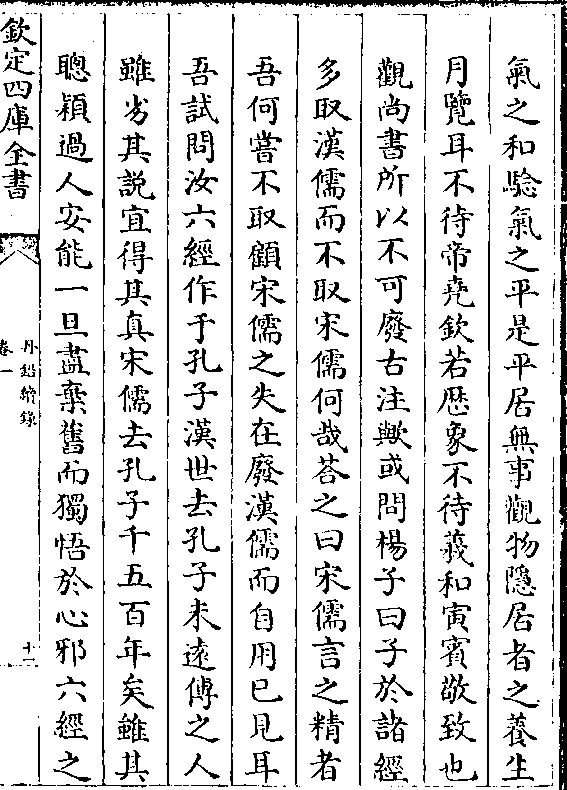 氣之和驗氣之平是平居無事觀物隱居者之養生
月覽耳不待帝堯欽若厯象不待羲和寅賓敬致也
觀尚書所以不可廢古注歟或問楊子曰子於諸經
多取漢儒而不取宋儒何哉荅之曰宋儒言之精者
吾何嘗不取顧宋儒之失在廢漢儒而自用已見耳
吾試問汝六經作于孔子漢世去孔子未逺傳之人
雖劣其説宜得其真宋儒去孔子千五百年矣雖其
聰穎過人安能一旦盡棄舊而獨悟於心邪六經之
欽定四庫全書
丹鉛續錄
卷一
十一